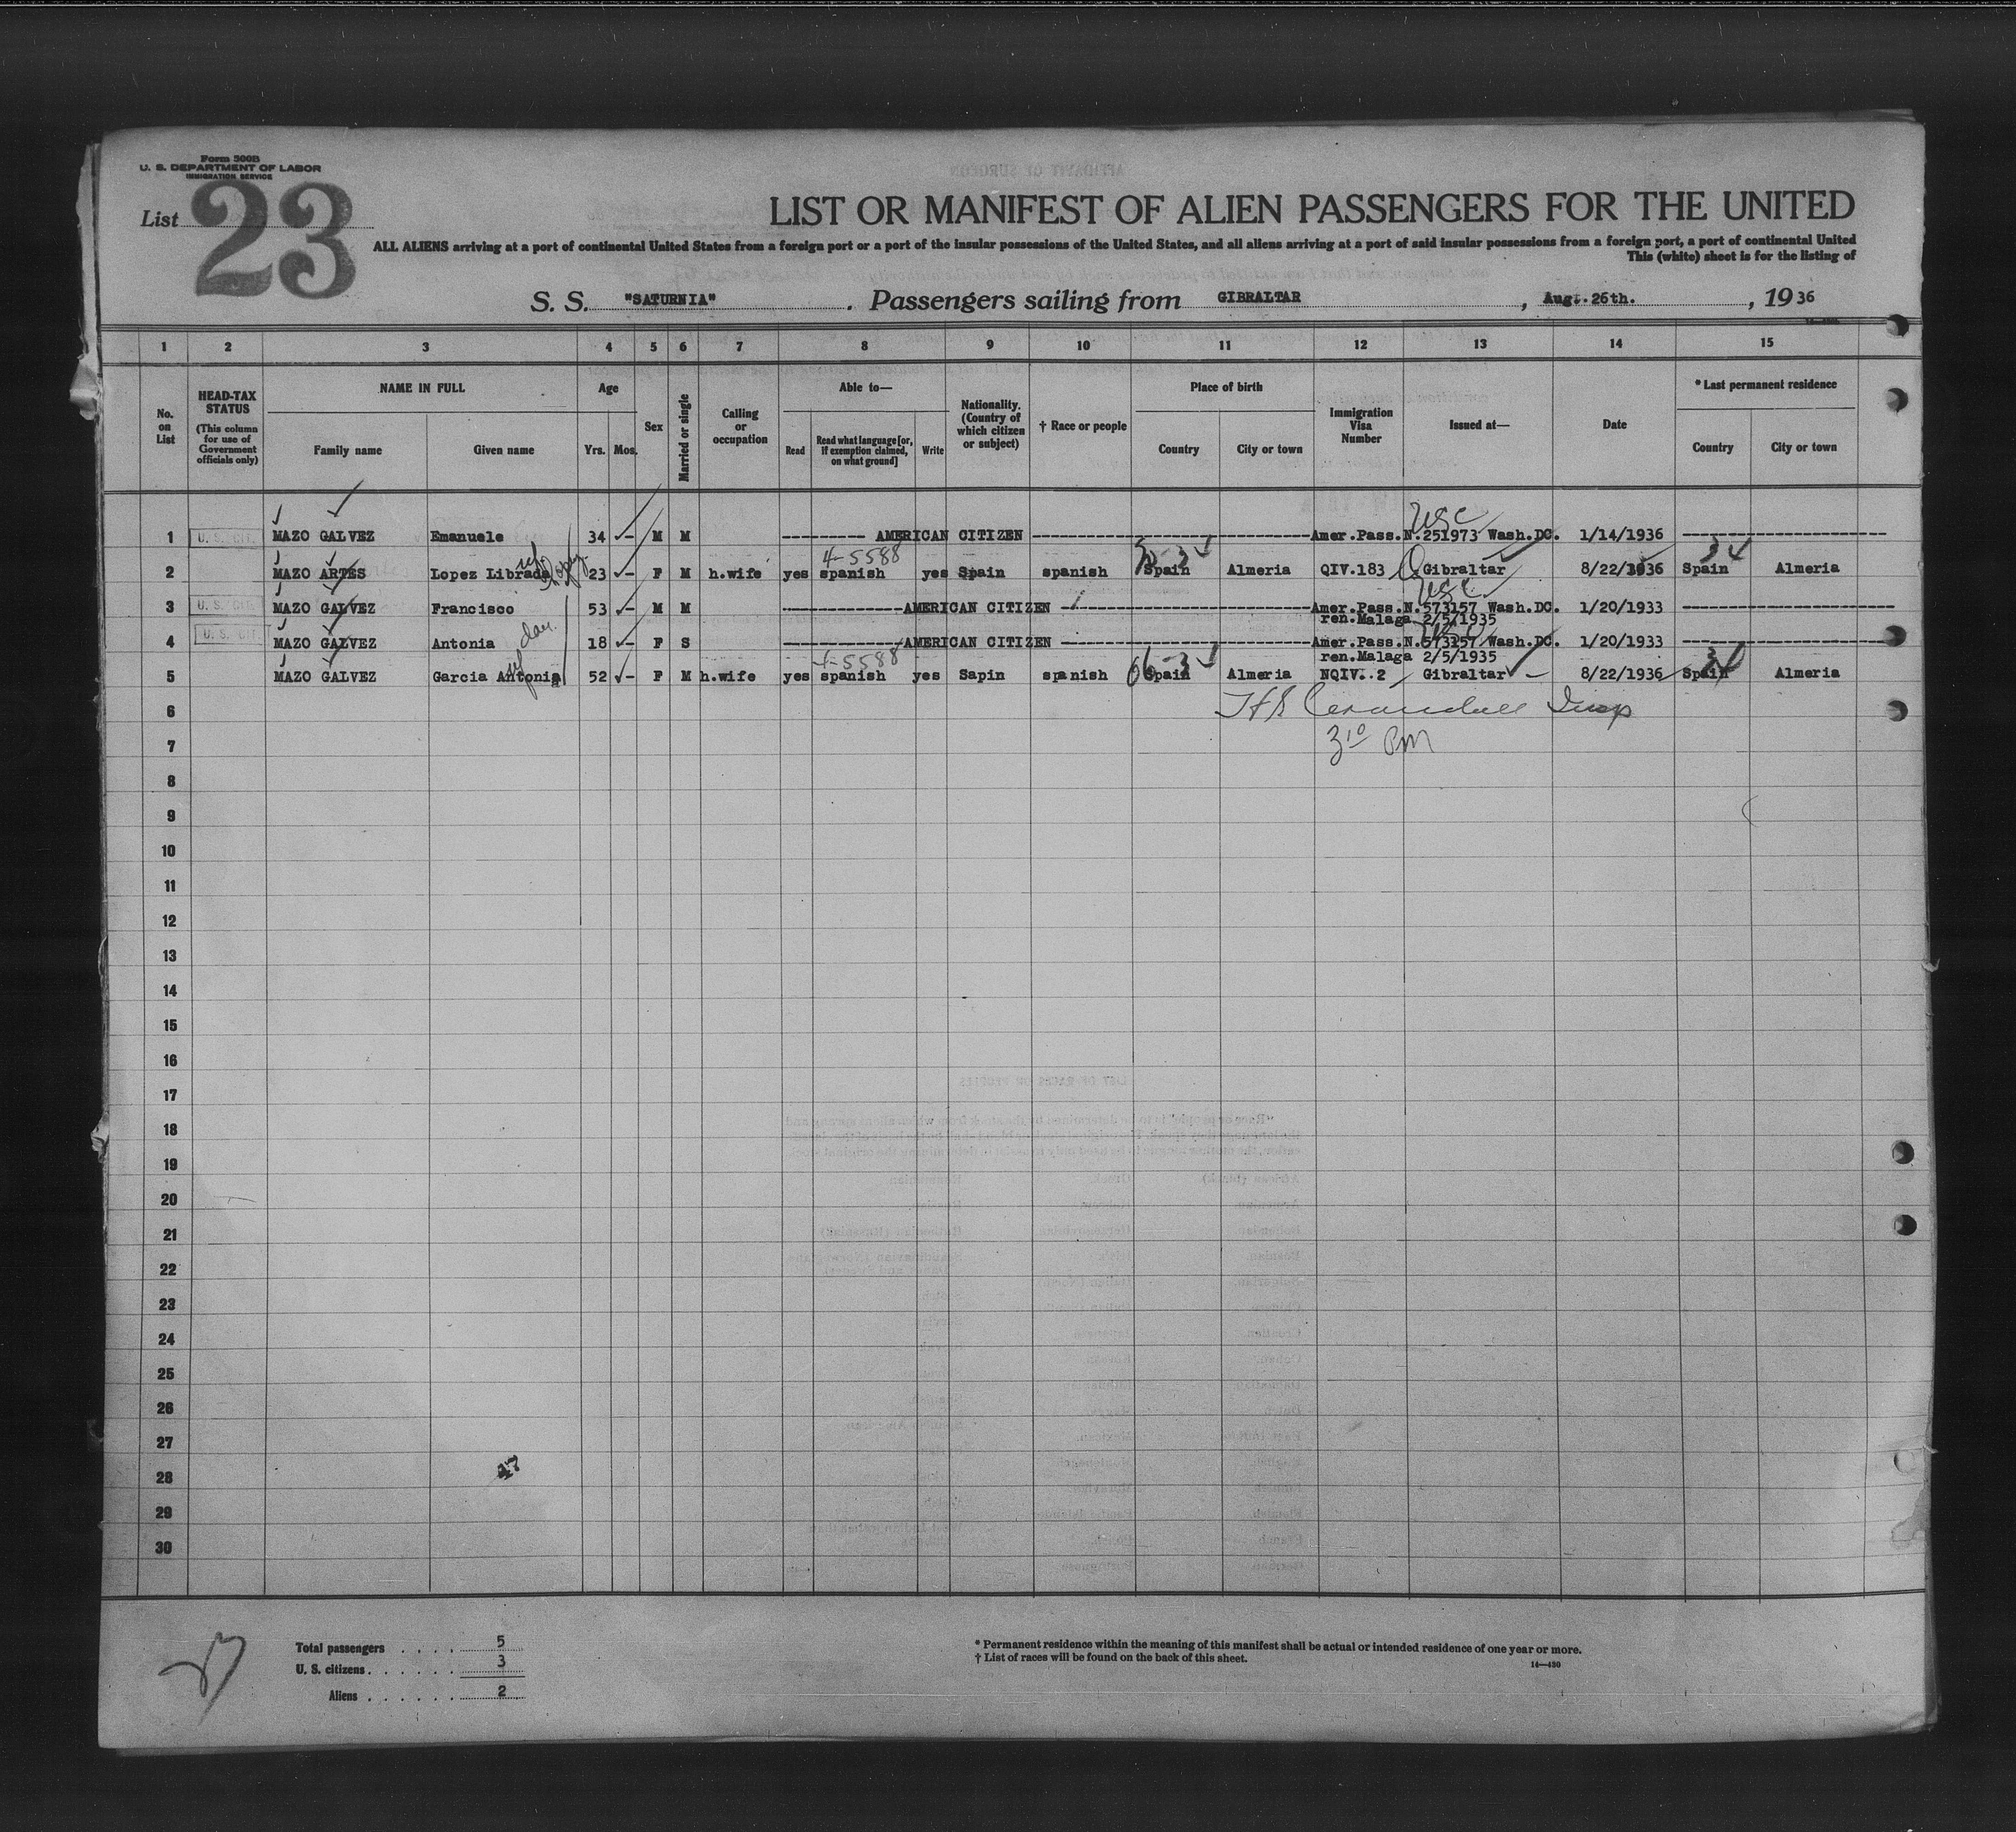 Form 500B
U. S. DEPARTMENT OF LABOR
IMMIGRATION SERVICE
List 23
LIST OR MANIFEST OF ALIEN PASSENGERS FOR THE UNITED
ALL ALIENS arriving at a port of continental United States from a foreign port or a port of the insular possessions of the United States, and all aliens arriving at a port of said insular possessions from a foreign port, a port of continental United
This (white) sheet is for the listing of
S. S. "SATURNIA". Passengers sailing from GIBRALTAR, Augt.26th., 1936
1 2 3 4 5 6 7 8 9 10 11 12 13 14 15
No. on List
HEAD-TAX STATUS
(This column for use of Government officials only)
NAME IN FULL
Family name
Given name
Age
Yrs. Mos.
Sex
Married or single
Calling or occupation
Able to—
Read
Read what language [or, if exemption claimed, on what ground]
Write
Nationality. (Country of which citizen or subject)
† Race or people
Place of birth
Country
City or town
Immigration Visa Number
Issued at—
Date
* Last permanent residence
Country
City or town
USC
1 U. S. CIT. MAZO GALVEZ Emanuele 34 - M M --------- AMERICAN CITIZEN --------- Amer.Pass.N.251973 Wash.DC. 1/14/1936 ---------
4-5588
2 MAZO ARTES Lopez Librada 23 - F M h.wife yes spanish yes Spain spanish Spain Almeria QIV.183 Gibraltar 8/22/1936 Spain Almeria
USC
3 U. S. CIT. MAZO GALVEZ Francisco 53 - M M ---------AMERICAN CITIZEN --------- Amer.Pass.N.573157 Wash.DC. 1/20/1933 ---------
ren.Malaga 2/5/1935
4 U. S. CIT. MAZO GALVEZ Antonia dau. 18 - F S ---------AMERICAN CITIZEN --------- Amer.Pass.N.573157 Wash.DC. 1/20/1933 ---------
ren.Malaga 2/5/1935
4-5588
5 MAZO GALVEZ Garcia Antonia 52 - F M h.wife yes spanish yes Sapin spanish Spain Almeria NQIV..2 Gibraltar 8/22/1936 Spain Almeria
6
7 3 10 PM
8
9
10
11
12
13
14
15
16
17
18
19
20
21
22
23
24
25
26
27
28
29
30
Total passengers . . . . 5
U. S. citizens . . . . . . 3
Aliens . . . . . . 2
* Permanent residence within the meaning of this manifest shall be actual or intended residence of one year or more.
† List of races will be found on the back of this sheet.
14—430